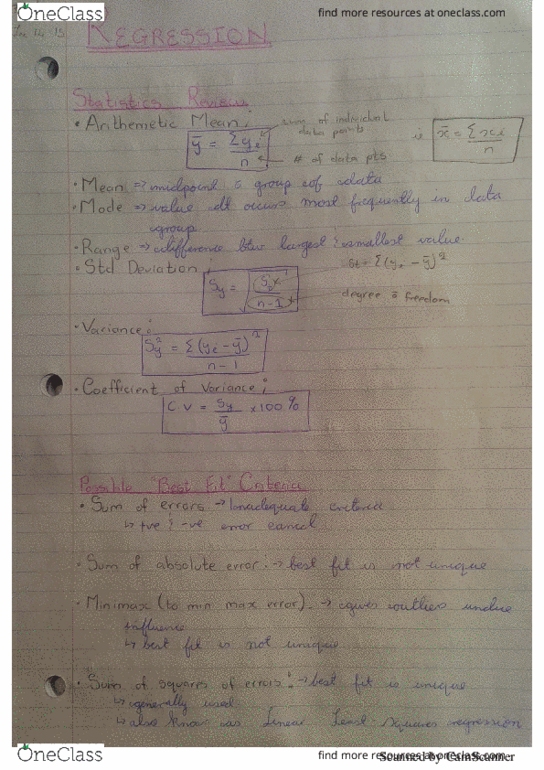 OneClass
find more resources at oneclass.com
REGRESSION
Statistics Review
• Arithemetic Mean:
sum of individual
data points
ȳ = Σyi / n
# of data pts
x̄ = Σxi / n
• Mean => midpoint of group of data
• Mode => value dt occurs most frequently in data
group
• Range -> difference btw largest & smallest value.
• Std Deviation:
St = Σ(yi - ȳ)²
Sy = √(St / n-1)
degree of freedom
• Variance:
Sy² = Σ(yi - ȳ)² / n-1
• Coefficient of Variance:
CV = Sy / ȳ × 100%
Possible "Best Fit" Criteria
• Sum of errors -> Inadequate criteria
↳ +ve & -ve error cancel
• Sum of absolute error: -> best fit is not unique
• Minimax (to min max error). -> gives outliers undue
influence
↳ best fit is not unique
• Sum of squares of errors: -> best fit is unique
↳ generally used
↳ also know as Linear Least Squares regression
OneClass
find more resources at oneclass.com
Scanned by CamScanner